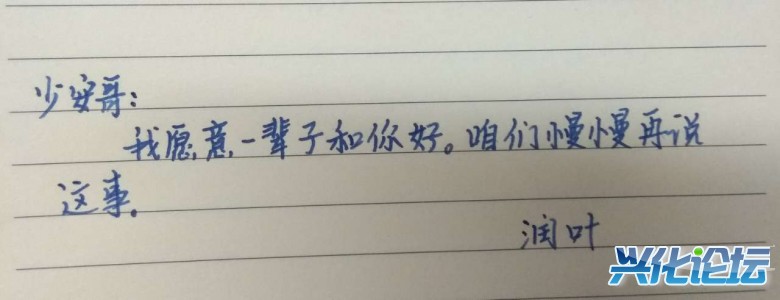 少安哥：
我愿意一辈子和你好。咱们慢慢再说
这事。
润叶
兴化论坛